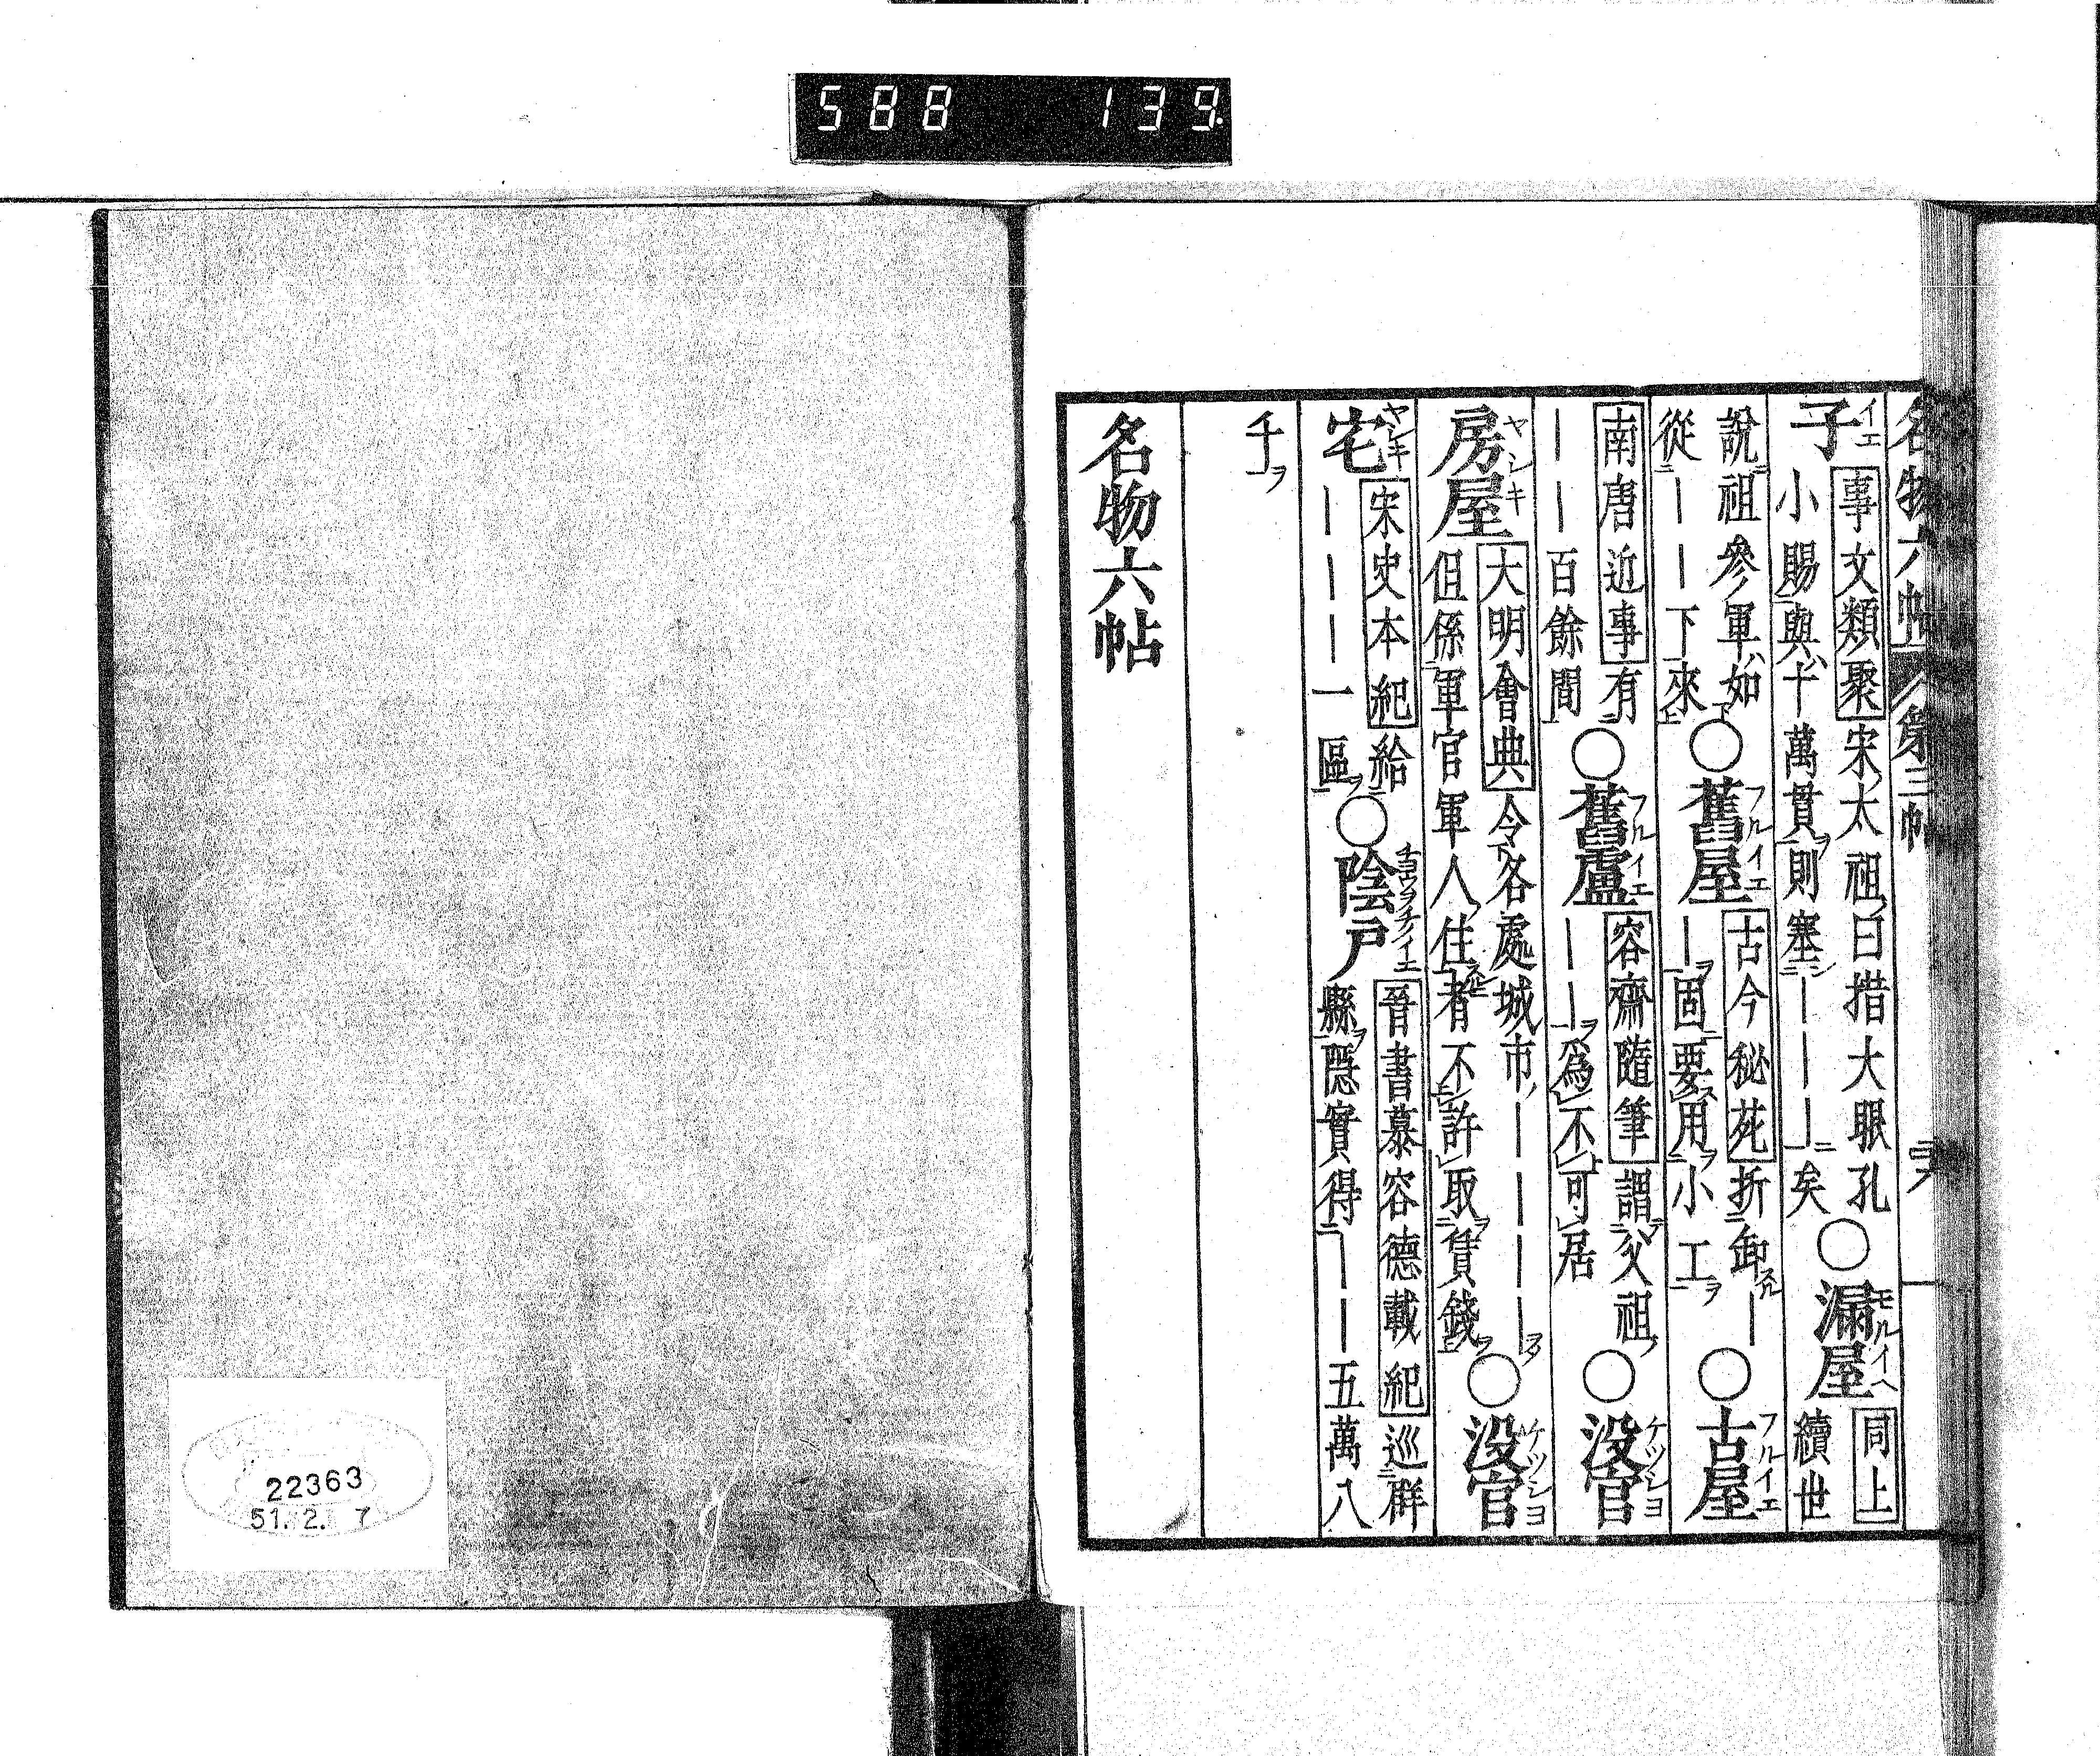 588 139
名物六帖 第三帖
子 事文類聚宋太祖曰措大眼孔
小賜與十萬貫則塞｜｜｜矣
○漏屋 同上
續世
說祖參軍如
從｜｜下來
○舊屋 古今秘苑折卸｜
｜固要用小工
○古屋
南唐近事有
｜｜百餘間
○舊廬 容齋隨筆謂父祖
｜｜爲不可居
○没官
房屋 大明會典令各處城市｜｜｜｜
但係軍官軍人住者不許取賃錢
○没官
宅 宋史本紀給
｜｜｜一區
○陰戸 晉書慕容德載紀巡群
縣隱實得｜｜五萬八
千
名物六帖
22363
51. 2. 7